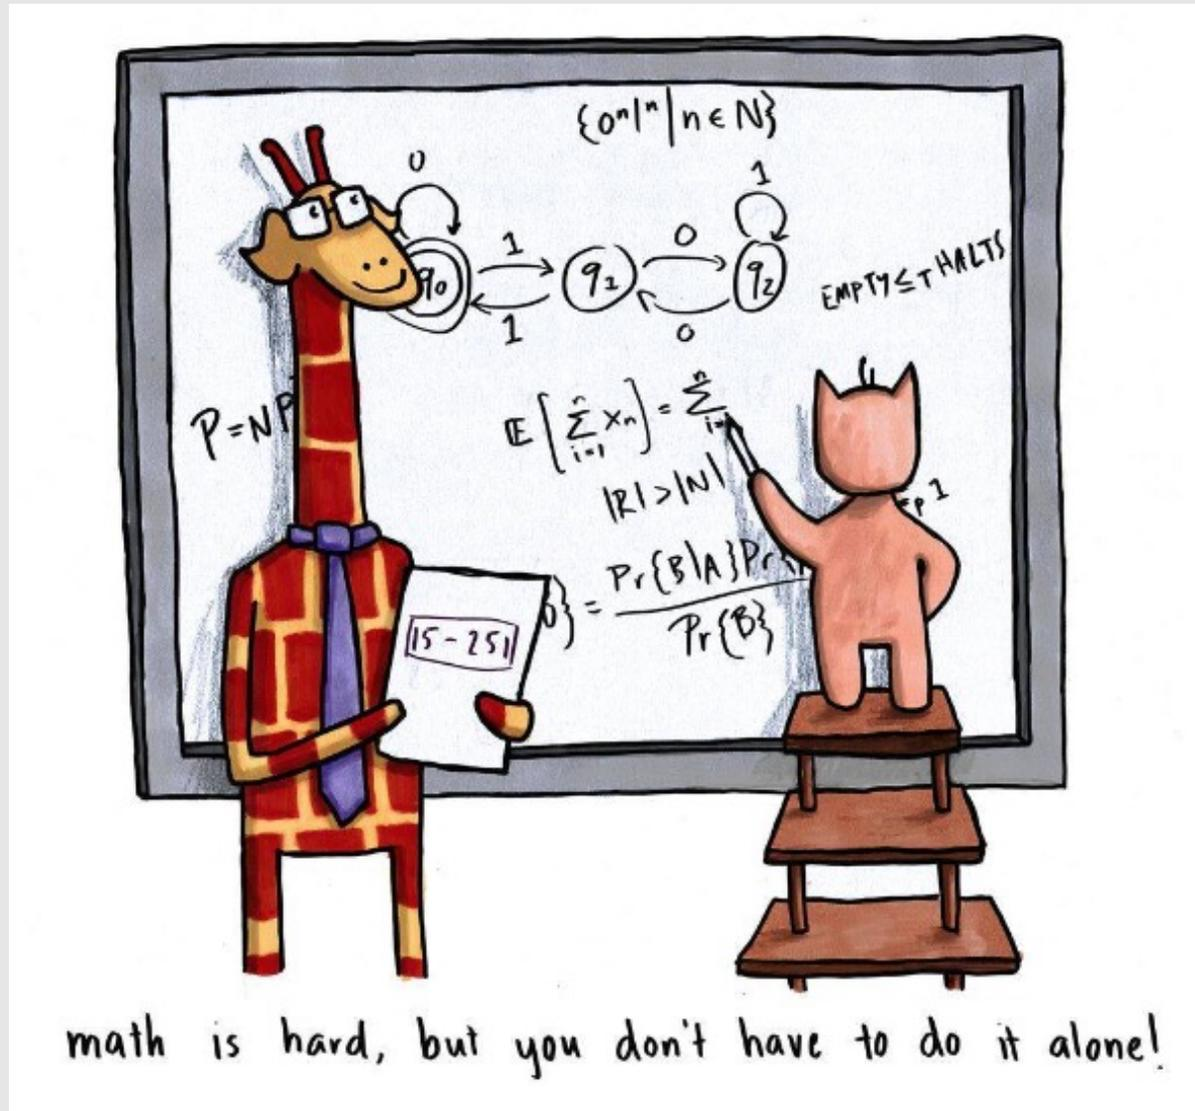 {0ⁿ1ⁿ|n∈N}
0
1
q₀
1
q₁
0
q₂
1
0
EMPTY ≤ᴛ HALTS
P=NP
𝔼[∑ᵢ₌₁ⁿ xₙ] = ∑ᵢ₌ⁿ
|R|>|N|
≡ₚ 1
} = Pr{B|A}Pr{
Pr{B}
15-251
math is hard, but you don't have to do it alone!